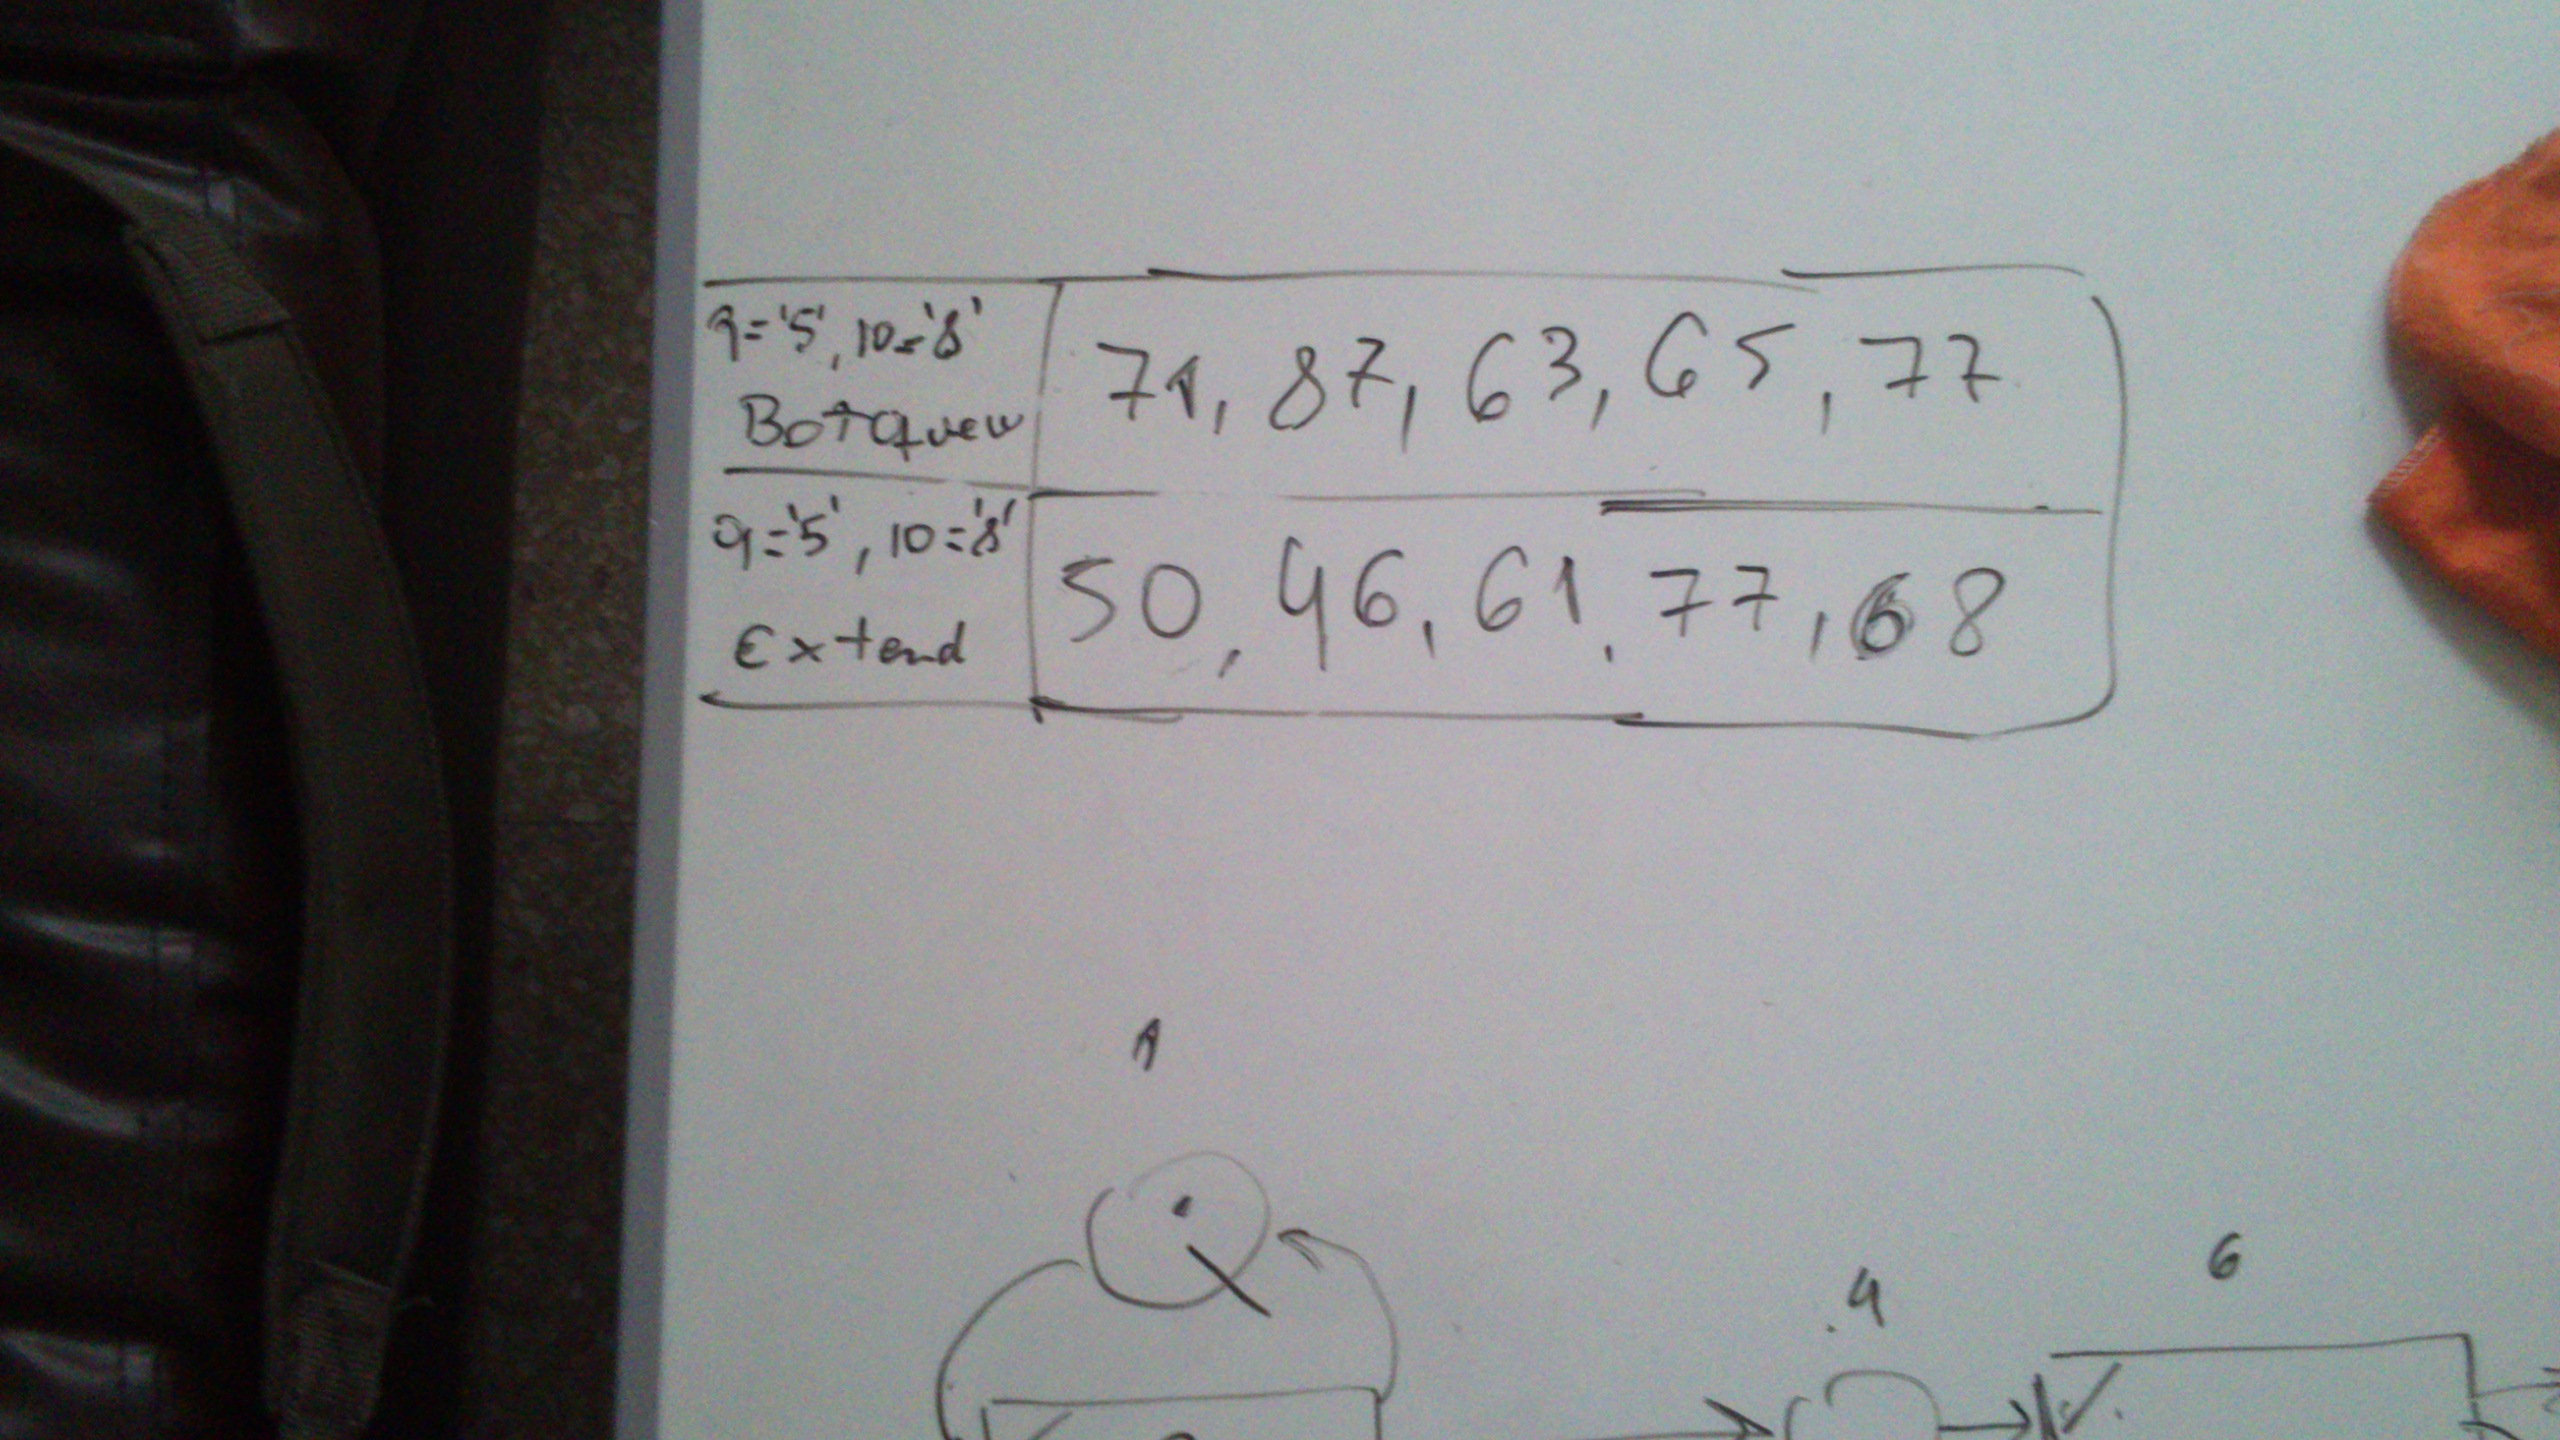 9='5', 10='8'
71, 87, 63, 65, 77
9='5', 10='8'
Extend
50, 46, 61, 77, 68
1
4
6